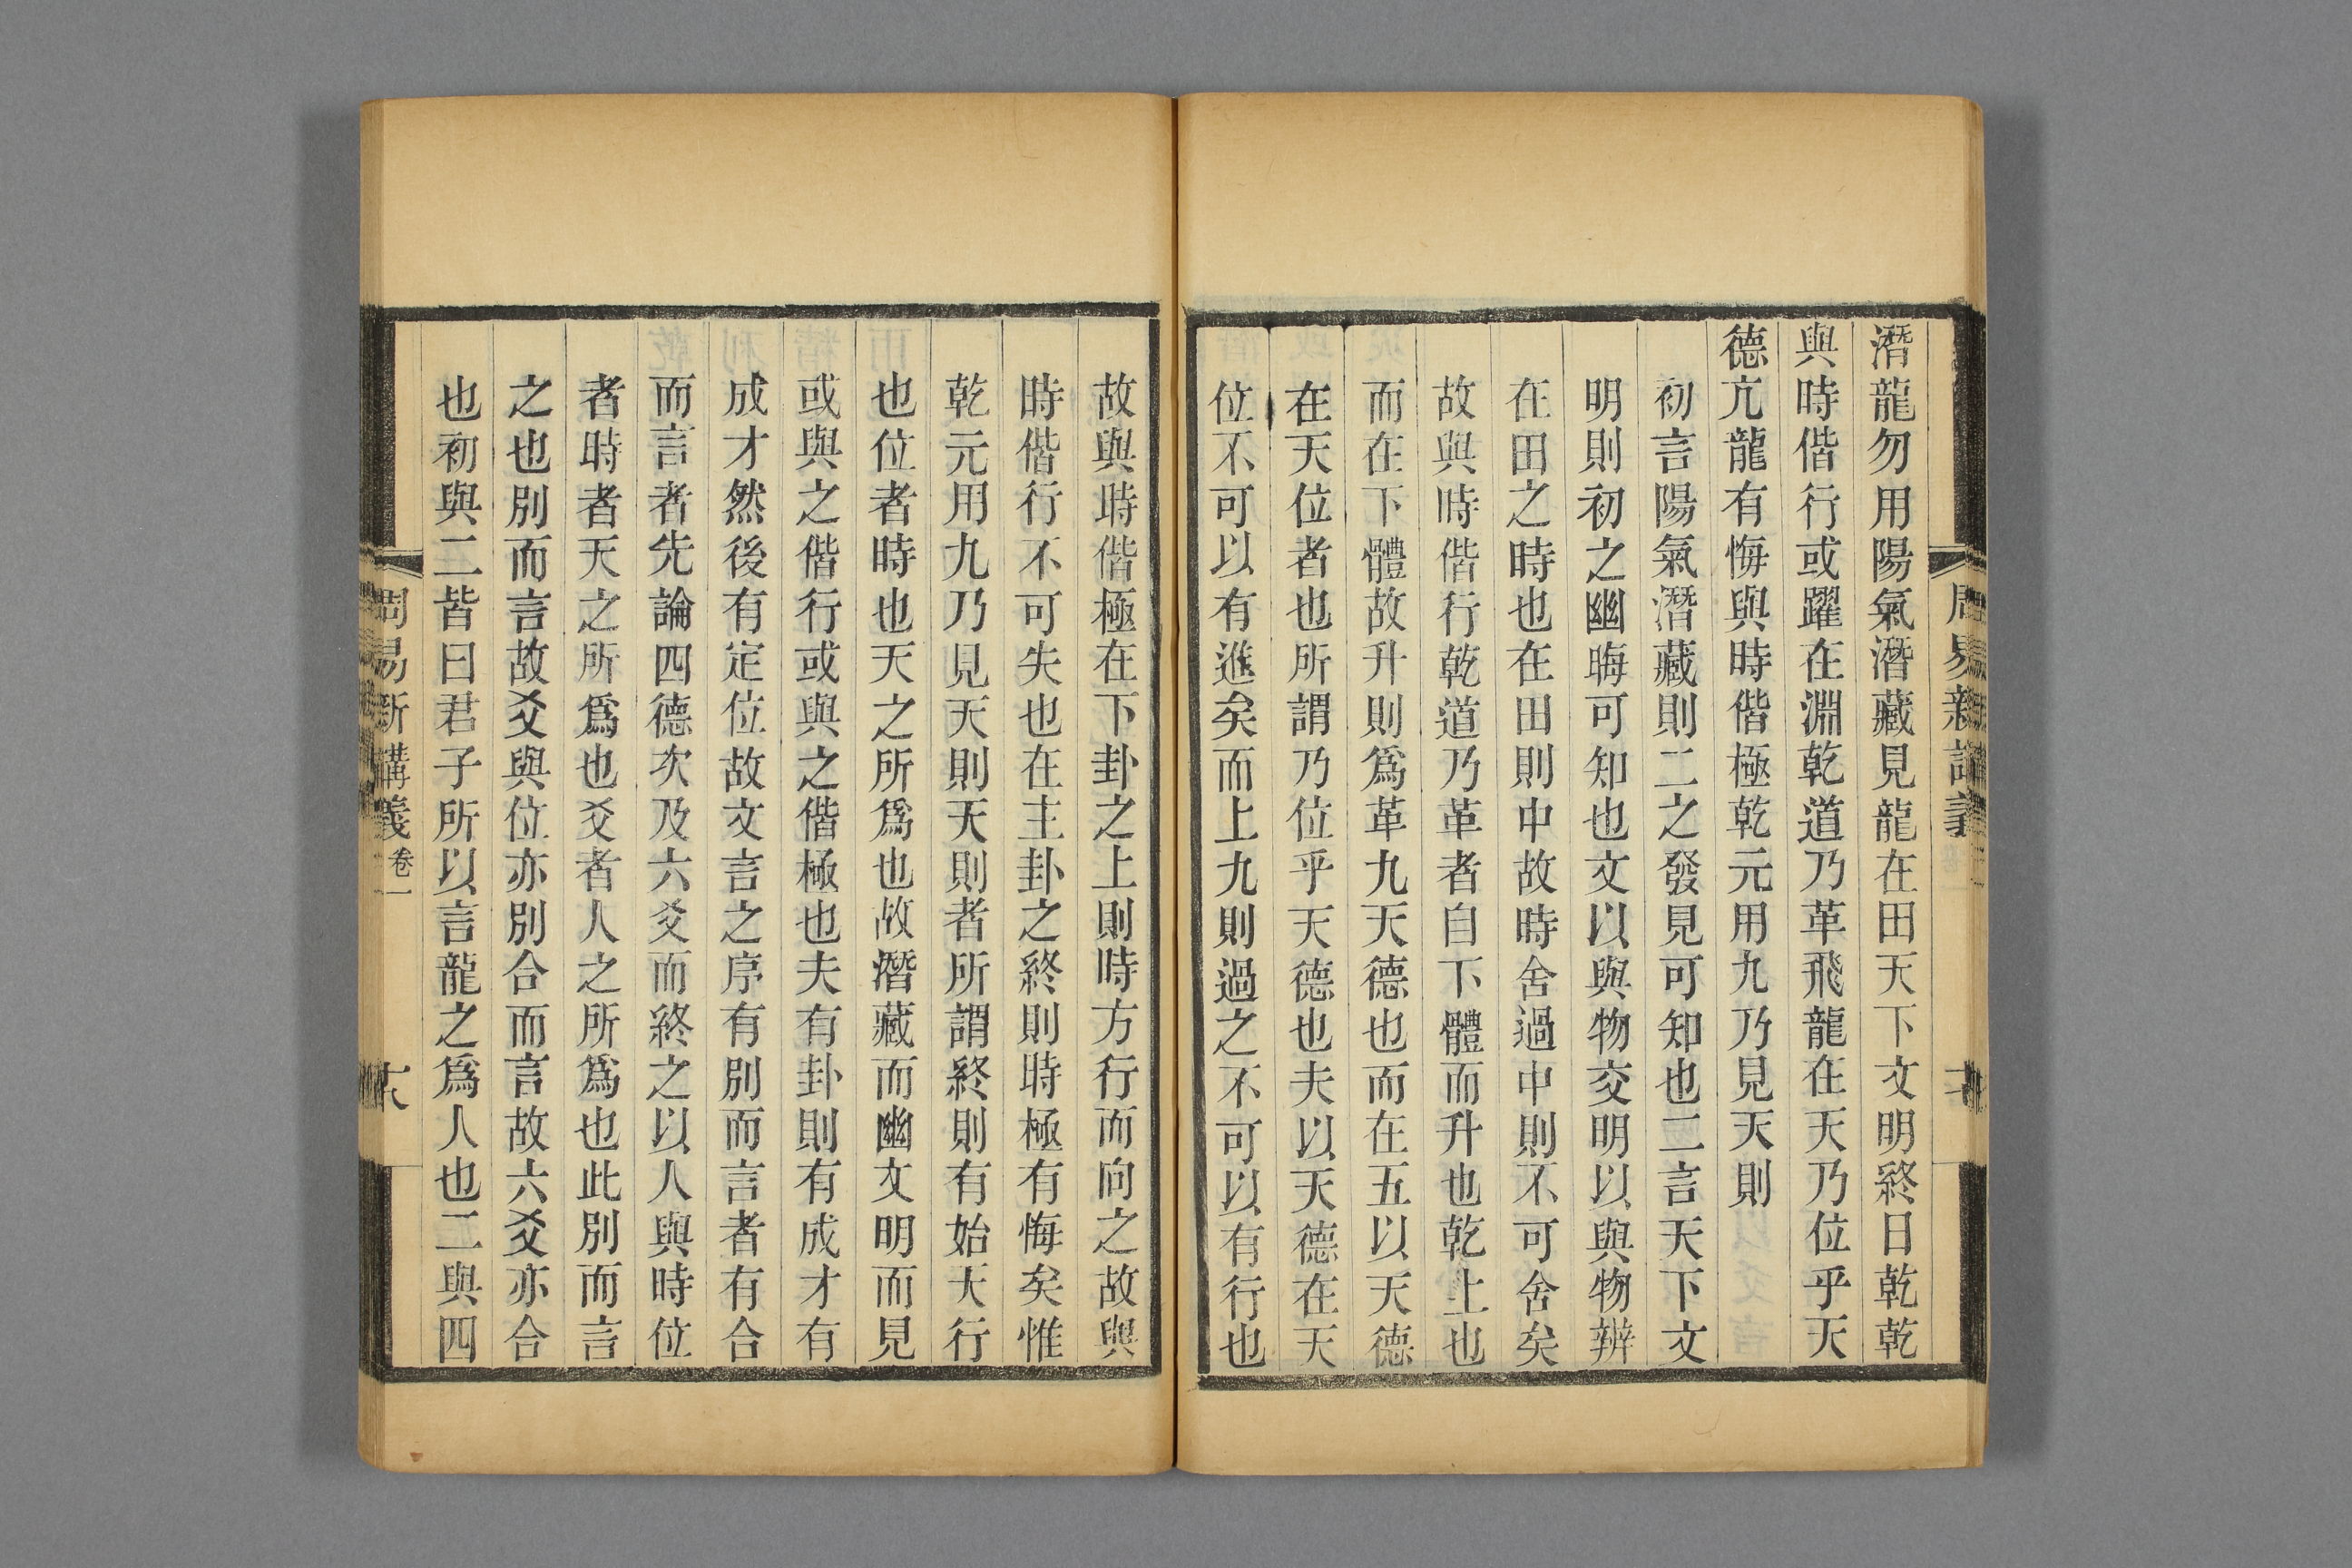 潛龍勿用陽氣潛藏見龍在田天下文明終日乾乾
與時偕行或躍在淵乾道乃革飛龍在天乃位乎天
德亢龍有悔與時偕極乾元用九乃見天則
初言陽氣潛藏則二之發見可知也二言天下文
明則初之幽晦可知也文以與物交明以與物辨
在田之時也在田則中故時舍過中則不可舍矣
故與時偕行乾道乃革者自下體而升也乾上也
而在下體故升則爲革九天德也而在五以天德
在天位者也所謂乃位乎天德也夫以天德在天
位不可以有進矣而上九則過之不可以有行也
故與時偕極在下卦之上則時方行而向之故與
時偕行不可失也在主卦之終則時極有悔矣惟
乾元用九乃見天則天則者所謂終則有始天行
也位者時也天之所爲也故潛藏而幽文明而見
或與之偕行或與之偕極也夫有卦則有成才有
成才然後有定位故文言之序有別而言者有合
而言者先論四德次及六爻而終之以人與時位
者時者天之所爲也爻者人之所爲也此別而言
之也別而言故爻與位亦別合而言故六爻亦合
也初與二皆曰君子所以言龍之爲人也二與四
周易新講義卷一